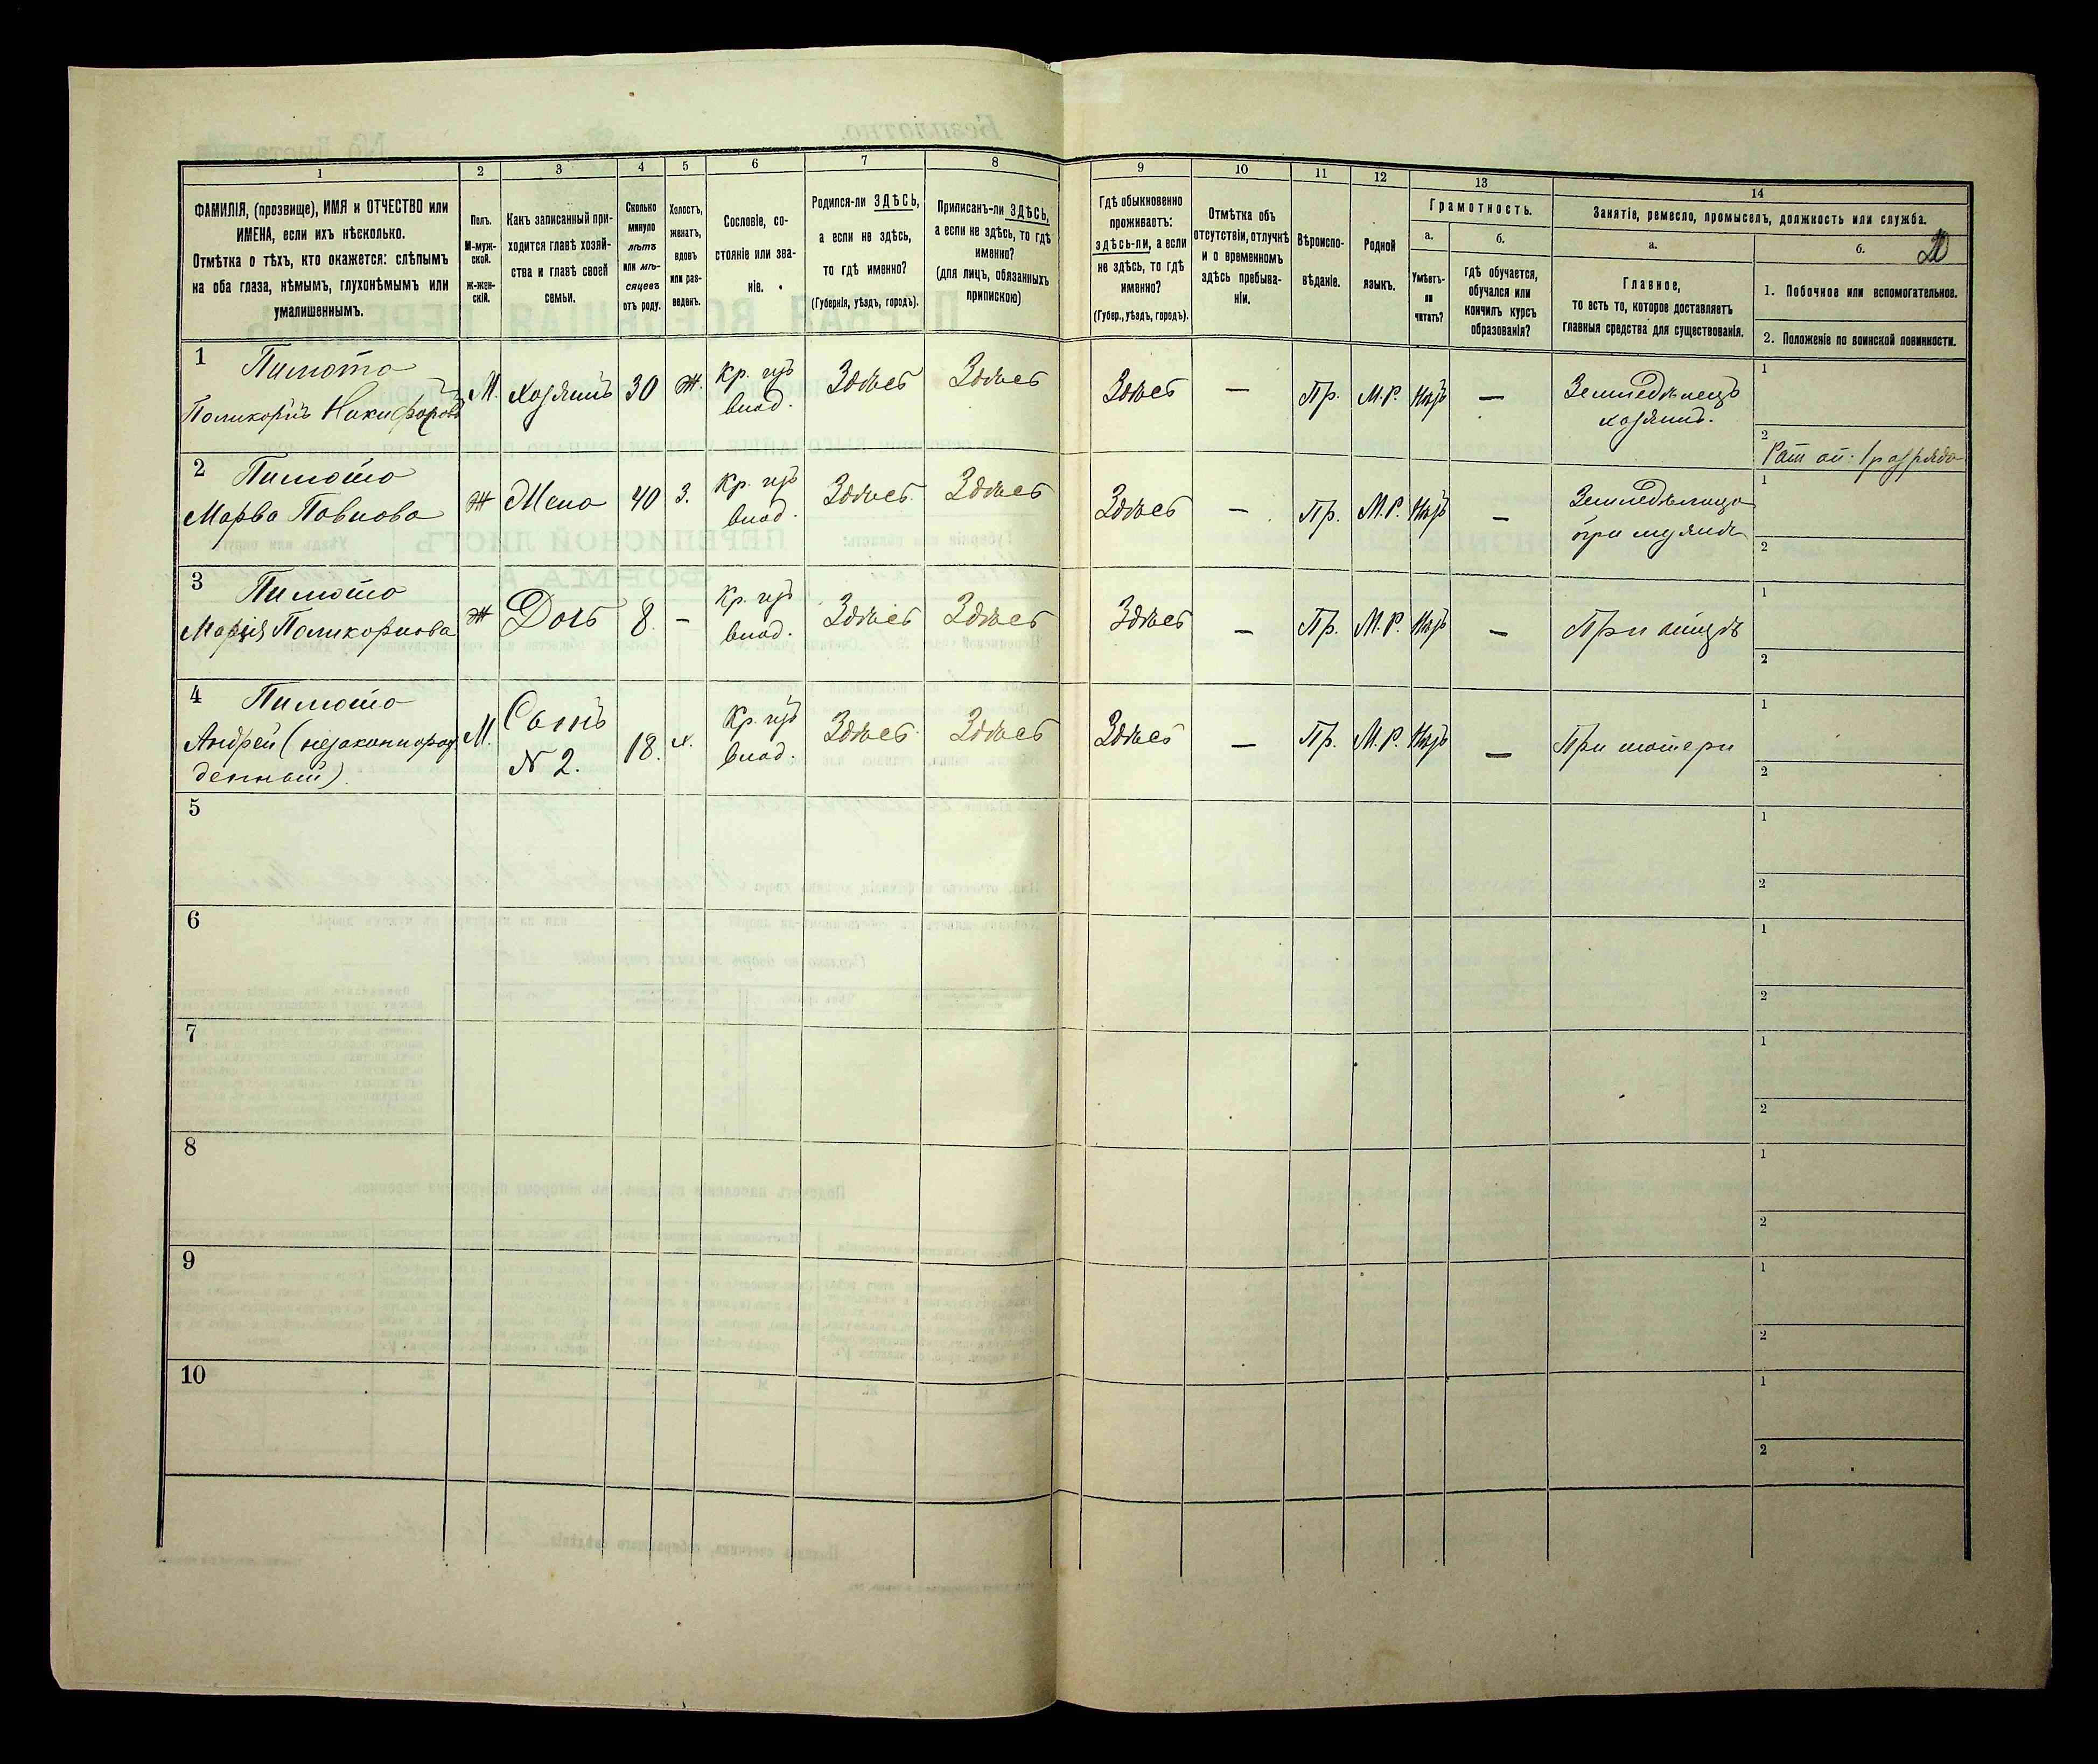 1
2
3
4
5
6
7
8
9
10
11
12
13
14
ФАМИЛІЯ, (прозвище), ИМЯ и ОТЧЕСТВО или
ИМЕНА, если ихъ нѣсколько.
Отмѣтка о тѣхъ, кто окажется: слѣпымъ
на оба глаза, нѣмымъ, глухонѣмымъ или
умалишеннымъ.
Полъ.
М-муж-
ской.
Ж-жен-
скій.
Какъ записанный при-
ходится главѣ хозяй-
ства и главѣ своей
семьи.
Сколько
минуло
лѣтъ
или мѣ-
сяцевъ
отъ роду.
Холостъ,
женатъ,
вдовъ
или раз-
веденъ.
Сословіе, со-
стояніе или зва-
ніе.
Родился-ли ЗДѢСЬ,
а если не здѣсь,
то гдѣ именно?
(Губернія, уѣздъ, городъ).
Приписанъ-ли ЗДѢСЬ,
а если не здѣсь, то гдѣ
именно?
(для лицъ, обязанныхъ
припискою)
Гдѣ обыкновенно
проживаетъ:
здѣсь-ли, а если
не здѣсь, то гдѣ
именно?
(Губер., уѣздъ, городъ).
Отмѣтка объ
отсутствіи, отлучкѣ
и о временномъ
здѣсь пребыва-
ніи.
Вѣроиспо-
вѣданіе.
Родной
языкъ.
Грамотность.
а.
Умѣетъ-
ли
читать?
б.
Гдѣ обучается,
обучался или
кончилъ курсъ
образованія?
Занятіе, ремесло, промыселъ, должность или служба.
а.
Главное,
то есть то, которое доставляетъ
главныя средства для существованія.
б.
20
1. Побочное или вспомогательное.
2. Положеніе по воинской повинности.
1
Пилюта
Поликорпъ Никифоровъ
М.
хозяинъ
30
ж.
Кр. изъ
влад.
Здѣсь
Здѣсь
Здѣсь
—
Пр.
М.Р.
Нѣтъ
—
Земледѣлецъ
хозяинъ.
1
2
Рат. оп: 1 разряда
2
Пилюта
Марва Павлова
Ж
Жена
40
З.
Кр. изъ
влад.
Здѣсь
Здѣсь
Здѣсь
—
Пр.
М.Р.
Нѣтъ
—
Земледѣлица
при мужѣ
1
2
3
Пилюта
Марія Поликорпова
Ж
Дочь
8
—
Кр. изъ
влад.
Здѣсь
Здѣсь
Здѣсь
—
Пр.
М.Р.
Нѣтъ
—
При отцѣ
1
2
4
Пилюта
Андрей (незаконнорож
денный).
М.
Сынъ
N 2.
18.
х.
Кр. изъ
влад.
Здѣсь
Здѣсь
Здѣсь
—
Пр.
М.Р.
Нѣтъ
—
При матери
1
2
5
1
2
6
1
2
7
1
2
8
1
2
9
1
2
10
1
2